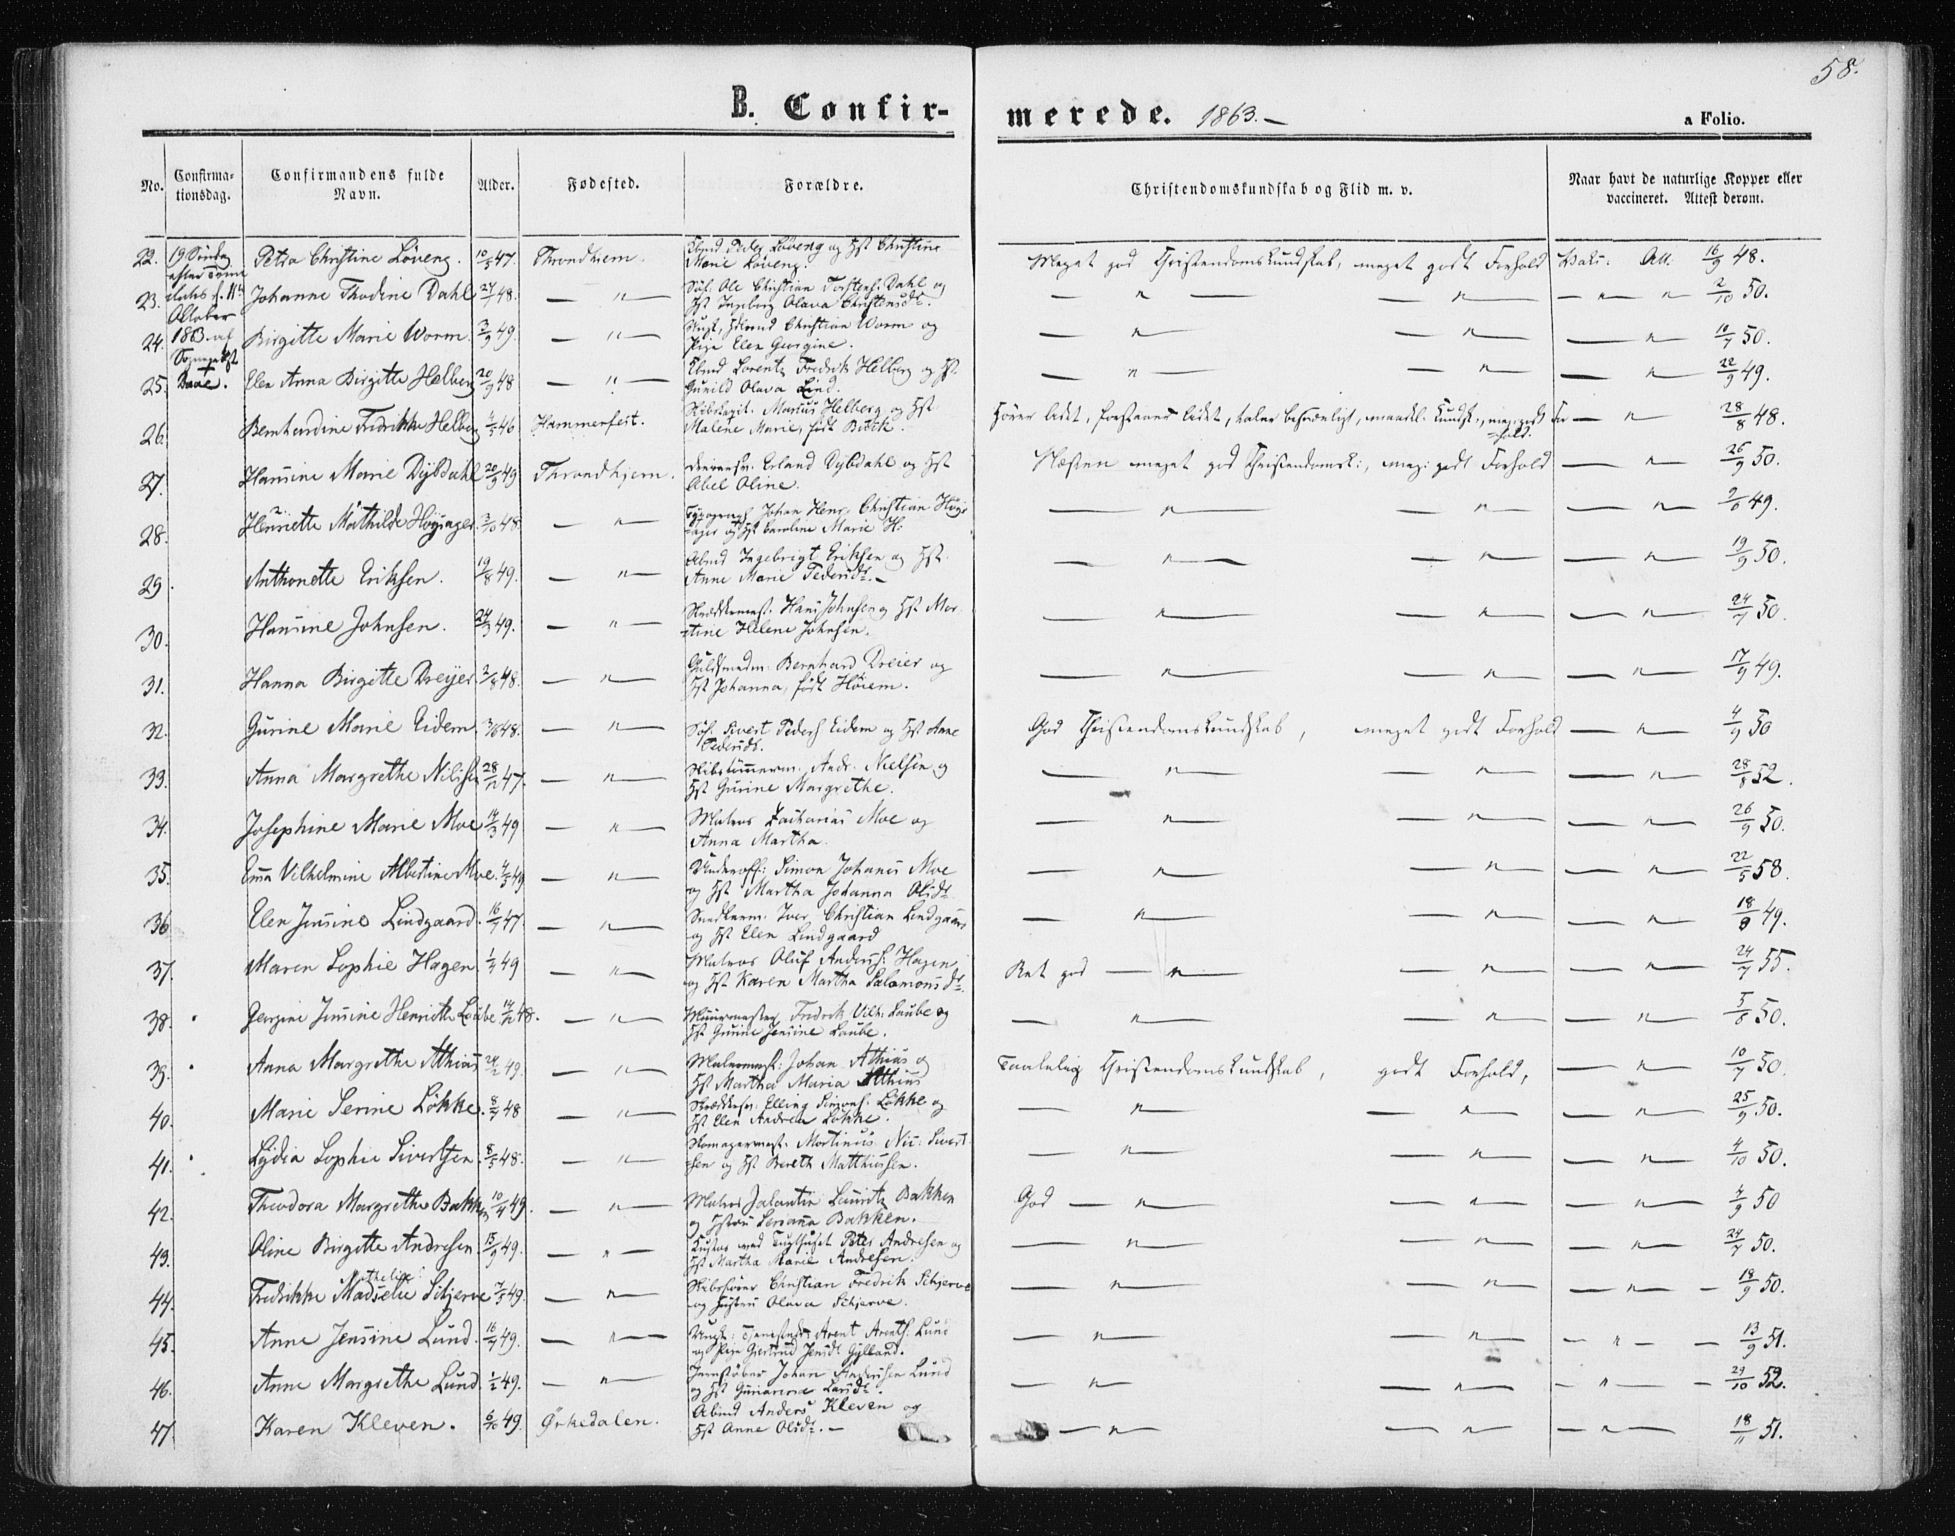 58.
B. Confir-
merede. 1863.—
a Folio.
No.
Confirma-
tionsdag.
Confirmandens fulde
Navn.
Alder.
Fødested.
Forældre.
Christendomskundskab og Flid m. v.
Naar havt de naturlige Kopper eller
vaccineret. Attest derom.
19 Søndag
efter
Oktober
1863. af
22. Petra Christine Løveng. 10/5 47. Throndhiem. Peder Løveng og Hst Christine
Marie Løveng. Meget god Christendomskundskab, meget godt Forhold Att. 16/9 48.
23. Johanne Thodine Dahl 24/1 48. — " — Ole Christian Dahl og
Hst Ingeborg Olava Christensdt. — " — — " — — " " 2/10 50.
24. Birgitte Marie Worm. 3/9 49. — " — Christian Worm og
Pige Elen Georgine. — " — — " — — " 10/7 50.
25. Elen Anna Birgitte Helberg 20/9 48 — " — Lorentz Fredrik Helberg og Hst.
Gunild Olava Lind. — " — — " — — " 22/9 49.
26. Bernhardine Fredrikke Helberg 4/5 46 Hammerfest. Marius Helberg og Hst
Malene Marie, født Beck. Hører lidet, forstaaer lidet, taler — " 28/8 48.
27. Hansine Marie Dybdahl 20/9 49 Throndhjem. Erland Dybdahl og Hst
Abel Oline. Næsten meget god Christendomsk:, meg: godt Forhold — " — 26/9 50.
28. Henriette Mathilde Høysager. 3/10 48. — " — Typograph Johan Henr. Christian
og Hst Caroline Marie H: — " — — " — — " — 49.
29. Anthonette Eriksen. 19/8 49. — " — Arbmd Ingebrigt Eriksen og Hst.
Anne Marie Pedersdt. — " — — " — — " — 19/9 50.
30. Hansine Johnsen. 24/3 49. — " — Hans Johnsen og Hst Mar-
tine Helene Johnsen. — " — — " — — " — 24/7 50.
31. Hanna Birgitte Dreyer. 2/8 48. — " — Guldsmedm: Bernhard Dreier og
Hst Johanna, født Høiem. — " — — " — — " — 17/9 49.
32. Gurine Marie Eidem. 48. — " — Sivert Peders Eidem og Hst Anne
Pedersdt. God Christendomskundskab, meget godt Forhold — " — 4/9 50
33. Anna Margrethe Nilsen 28/12 47. — " — Skibstømmerm. Andr. Nielsen og
Hst Gurine Margrethe. — " — — " — — " — 28/8 52.
34. Josephine Marie Moe 14/3 49 — " — Matros Zacharias Moe og
Anna Martha. — " — — " — — " — 26/9 50.
35. Ema Vilhelmine Albertine Moe. 4/5 49 — " — Underoff: Simon Johanes Moe
og Hst Martha Johanna Olsdt. — " — — " — — " — 22/5 58.
36. Elen Jensine Lindgaard. 16/7 47. — " — Snedkerm. Iver Christian Lindgaard
og Hst Elen Lindgaard — " — — " — — " — 18/9 49.
37. Maren Sophie Hagen. 1/4 49 — " — Matros Oluf Anders. Hagen
og Hst Karen Martha Salomonsdt. Ret god — " — — " — — " — 24/7 55.
38. Georgine Jensine Henriette Laube 14/12 48. — " — Muurmester Fredrik Vilh. Laube og
Hst Gurine Jensine Laube. — " — — " — — " — 5/8 50.
39. Anna Margrethe Athias 24/2 49. — " — Malermest: Johan Athias og
Hst Martha Maria Athias Taalelig Christendomskundskab, godt Forhold, — " — 10/7 50.
40. Marie Serine Løkke. 8/7 48 — " — Elling Simons. Løkke og
Hst Elen Andrea Løkke. — " — — " — — " — 25/9 50.
41. Lydia Sophie Sivertsen. 8/5 48. — " — Mortinus Nic: Sivert-
sen og Hst Bereth Matthiasen. — " — — " — — " — 4/10 50.
42. Theodora Margrethe Bakken 10/4 49. — " — Matros Lauritz Bakken
og Hstru Serianna Bakken. God — " — — " — — " — 4/9 50
43. Oline Birgitte Andresen. 15/9 49. — " — Peter Andresen og
Hst Martha Marie Andresen. — " — — " — — " — 24/7 50.
44. Fredrikke Schjerve 7/5 49. — " — Christian Fredrik Schjerve
og Hustru Olava Schjerve. — " — — " — — " — 18/9 50.
45. Anne Jensine Lund. 16/7 49. — " — Arent Arents. Lund
og Pige Gjertrud Jensdt. Gylland. — " — — " — — " — 13/9 51.
46. Anne Margrethe Lund. 1/2 49. — " — Jernstøber Johan Andersen Lund
og Hst Gurianna Larsdt. — " — — " — — " — 29/10 52.
47. Karen Kleven. 6/10 49. Ørkedalen. Arbmd Anders Kleven og
Hst Anne Olsdt. — — " — — " — — " — 18/11 51.